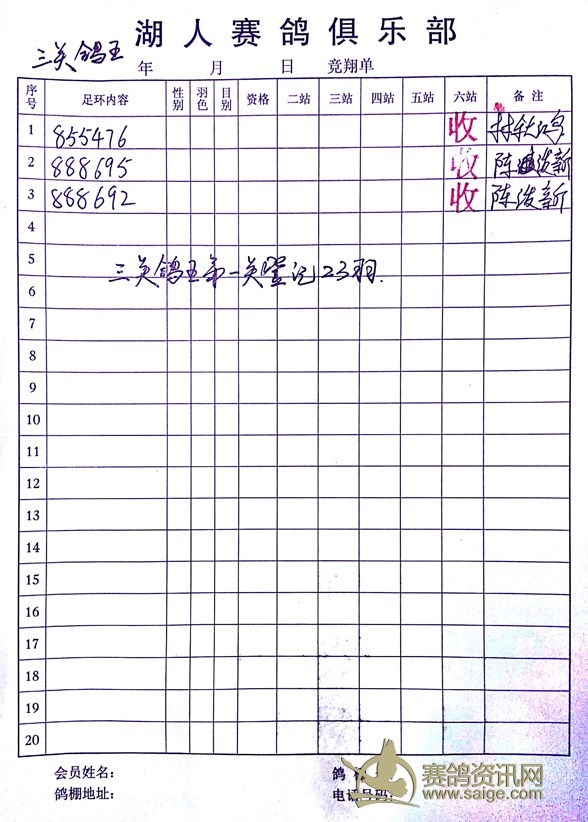 湖人赛鸽俱乐部
三关鸽王 年 月 日 竞翔单
序号 足环内容 性别 羽色 目别 资格 二站 三站 四站 五站 六站 备注
1 855476 收
2 888695 收 陈浚新
3 888692 收 陈浚新
4
5
三关鸽王第一关登记23羽.
6
7
8
9
10
11
12
13
14
15
16
17
18
19
20
会员姓名: 鸽
鸽棚地址: 电话号码:
赛鸽资讯网
www.saige.com